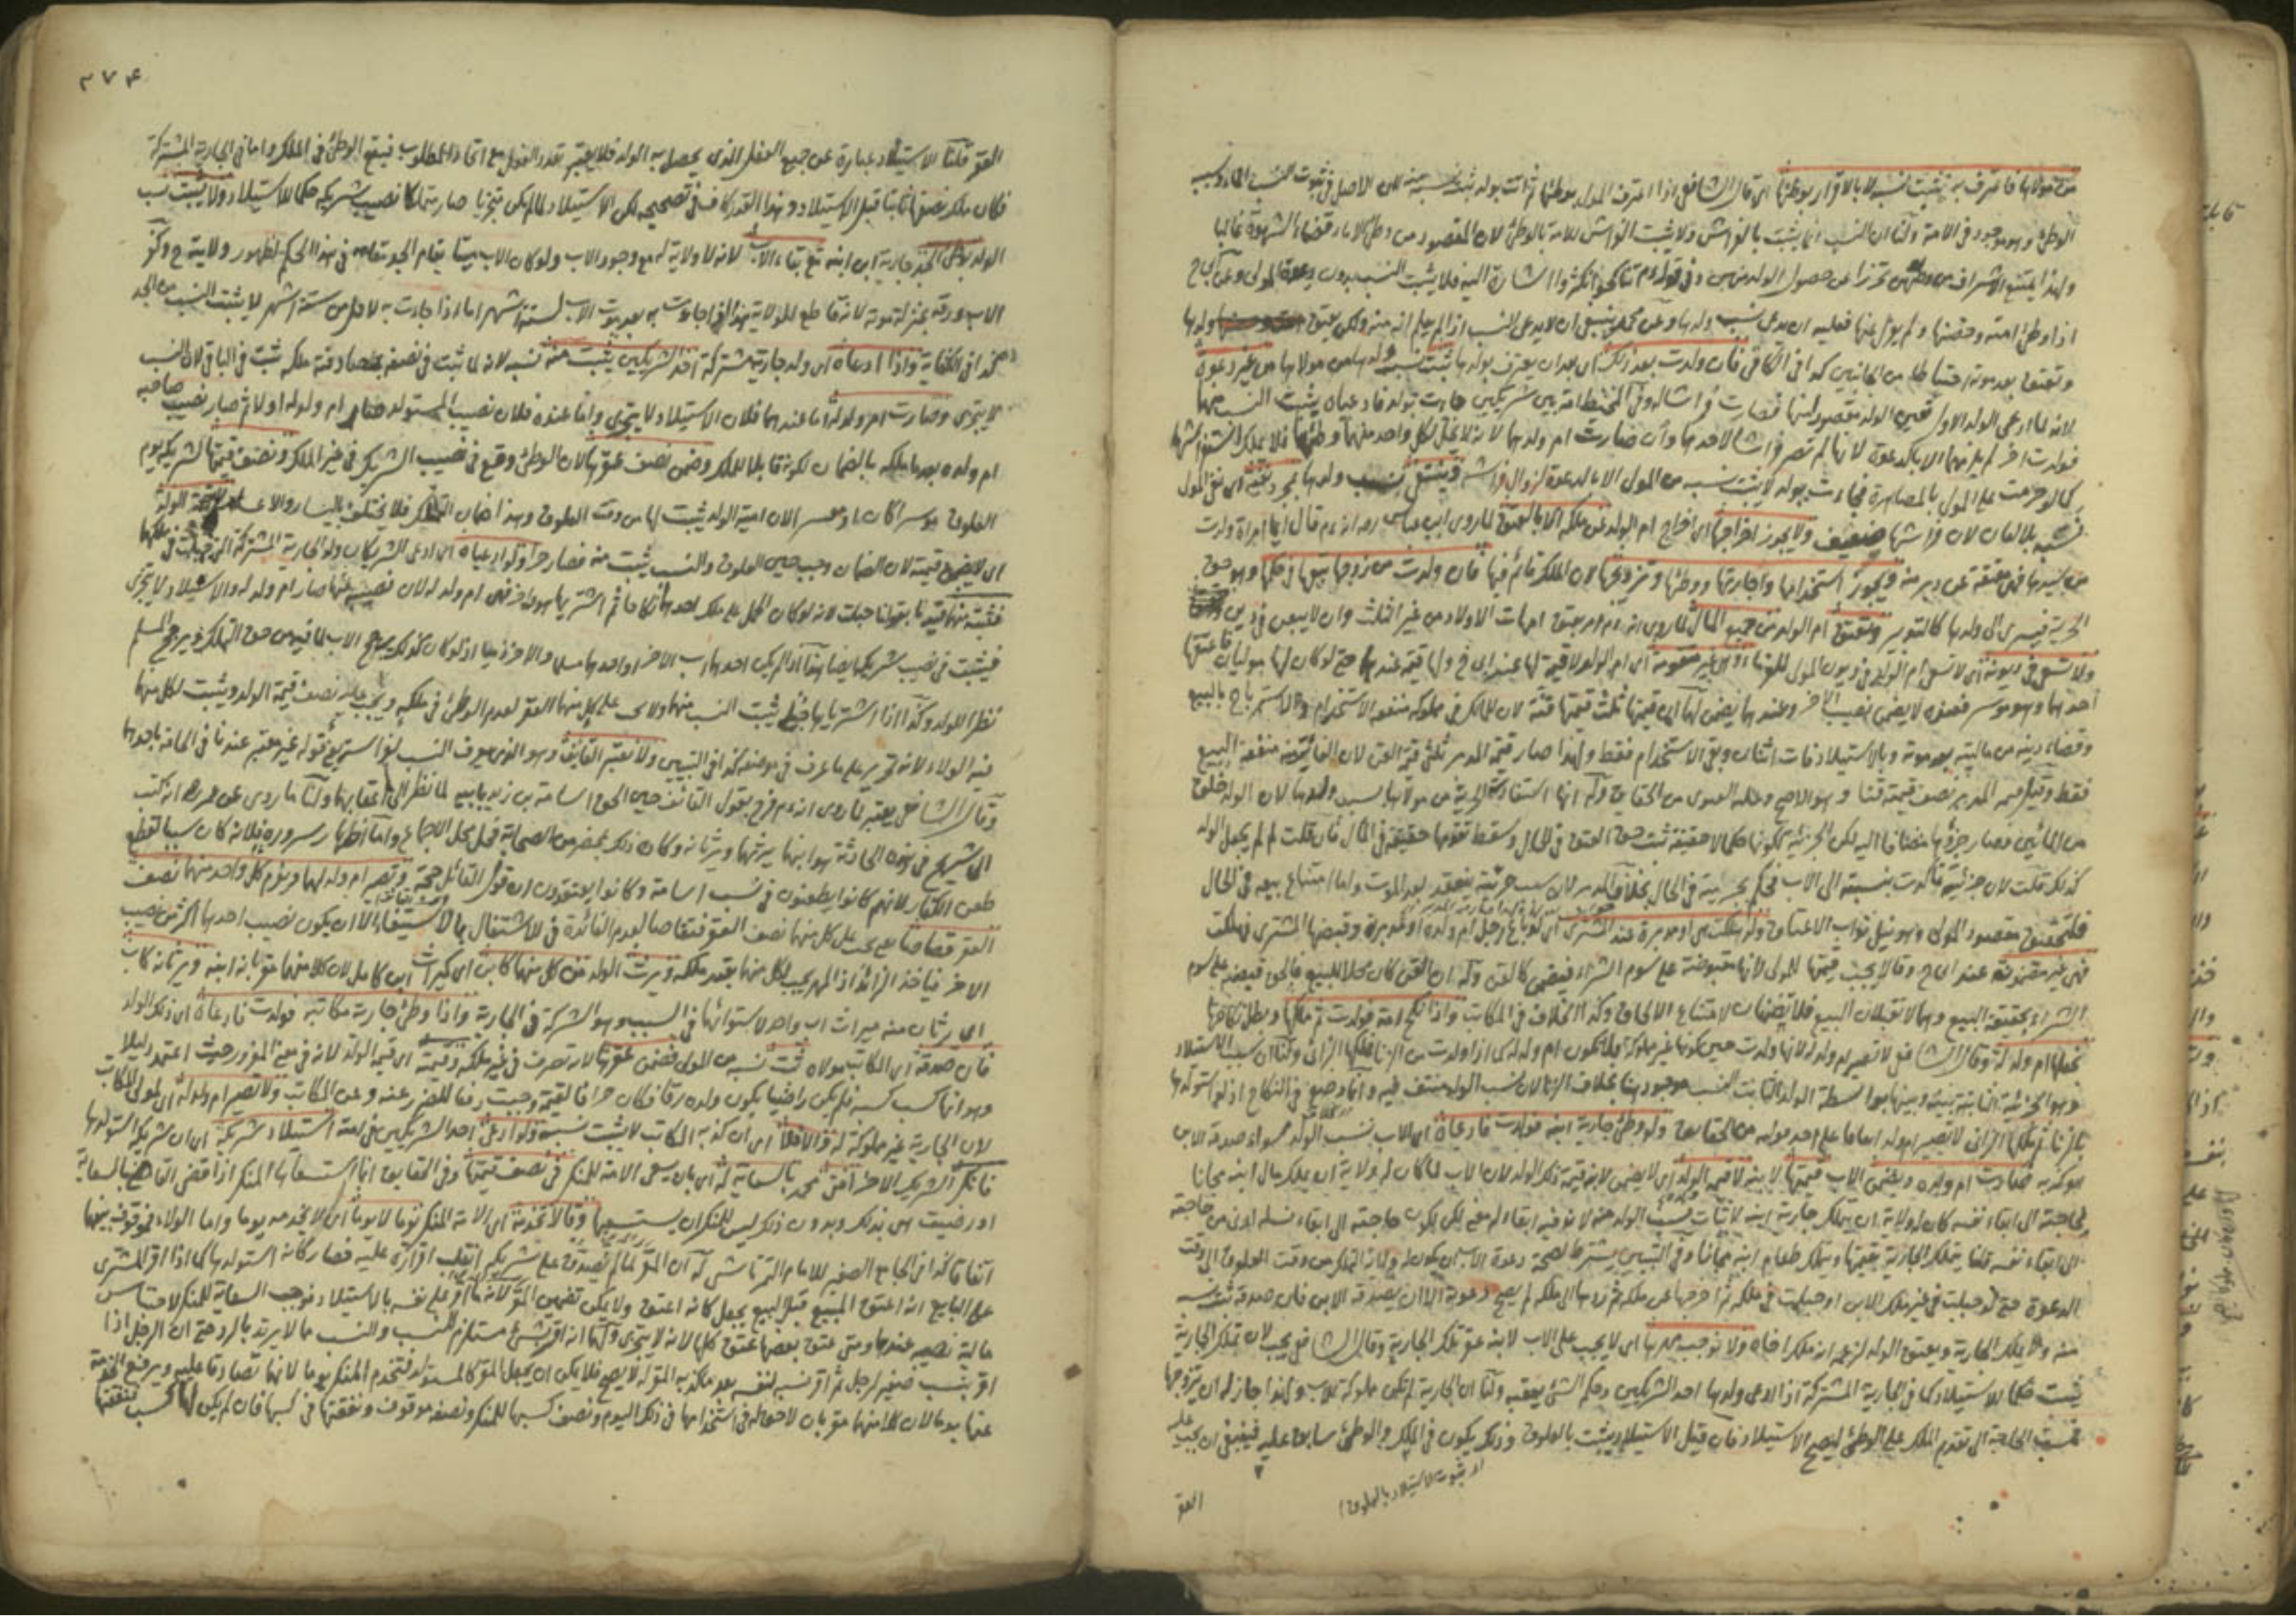 من مولاها فاعترف به يثبت نسبه لا بالاقرار بوطئها اي قال الشافعي اذا اعترف المولى بوطئها ثم اتت بولد يثبت نسبه منه لان الاصل في ثبوت النسب
الوطئ وهو موجود في الامة ولنا ان النسب انما يثبت بالفراش ولا يثبت الفراش للامة بالوطئ لان المقصود من وطئ الاماء قضاء الشهوة غالبا
ولهذا يمتنع الاشراف من وطئهن تحرزا عن حصول الولد منهن وفي قوله تناكحوا تكثروا اشارة اليه فلا يثبت النسب بدون دعوة المولى وعن
اذا وطئ امته وحصنها ولم يعزل عنها فعليه ان يدعي نسب ولدها وعن محمد ينبغي ان لا يدعي النسب اذا لم يعلم انه منه ولكن يعتق ولدها
وتعتق بعد موته احتياطا من الجانبين كذا في الكافي فان ولدت بعد ذلك اي بعد ان يعترف بولدها يثبت نسب ولدها من مولاها من غير دعوة
لانه لما ادعى الولد الاول تعين الولد مقصودا منها فصارت فراشا له وفي المحيط امة بين شريكين جاءت بولد فادعياه يثبت النسب منهما
فولدت اخر لم يلزمهما الا بالدعوة لانها لم تصر فراشا لاحدهما وان صارت ام ولد لهما لانه لا يحل لكل واحد منهما وطئها فلا يملك
كما لو حرمت على المولى بالمصاهرة فجاءت بولد لا يثبت نسبه من المولى الا بالدعوة لزوال فراشه وينتفي نسب ولدها بمجرد نفيه اي نفي المولى
نسبه بلا لعان لان فراشها ضعيف ولا يجوز اخراجها اي اخراج ام الولد عن ملكه الا بالعتق لما روى ابن عباس رضه انه عم قال ايما امراة ولدت
من سيدها فهي معتقة عن دبر منه ويجوز استخدامها واجارتها ووطئها وتزويجها لان الملك قائم فيها فان ولدت من زوجها يتبعها في حكمها وهو حق
الحرية فيسري الى ولدها كالتدبير وتعتق ام الولد من جميع المال لما روي انه عم امر بعتق امهات الاولاد من غير الثلث وان لا يبعن في دين
ولا تسعى في ديونه اي لا تسعى ام الولد في ديون المولى للغرماء وهي غير متقومة اي ام الولد لا قيمة لها عند ابي ح ولها قيمة عندهما حتى لو كان لها موليان فاعتقها
احدهما وهو موسر فعنده لا يضمن نصيب الاخر وعندهما يضمن لهما ان قيمتها ثلث قيمتها قنة لان للمالك في مملوكه منفعة الاستخدام والاسترباح بالبيع
وقضاء دينه من ماليته بعد موته وبالاستيلاد فات اثنان وبقي الاستخدام فقط ولهذا صار قيمة المدبر ثلثي قيمة القن لان الفائت منفعة البيع
فقط وقيل قيمة المدبر نصف قيمته قنا وهو الاصح وعليه الفتوى من الحقايق وله انها استفادت الحرية من مولاها بسبب ولدها لان الولد خلق
من المائين وصار جزؤها مضافا اليه لكن الجزئية لكونها حكما لا حقيقة ثبت حق العتق في الحال وسقط تقومها حقيقة في المال فان قلت لم لم يجعل الولد
كذلك قلت لان جزئيته تاكدت بنسبته الى الاب فحكم بحريته في الحال بخلاف المدبر لان سبب حريته ينعقد بعد الموت واما امتناع بيعه في الحال
فلتحقيق مقصود المولى وهو نيل ثواب الاعتاق ولو هلكت هي او مدبرة عند المشتري اي لو باع رجل ام ولده او مدبرة وقبضها المشتري فهلكت
فهي غير مضمونة عند ابي ح وقالا يجب قيمتها للمولى لانها مقبوضة على سوم الشراء فيضمن كالقن وله ان القن كان محلا للبيع فالحق قبضه على سوم
الشراء بحقيقة البيع وهما لا تقبلان البيع فلا يضمنان لامتناع الالحاق وكذا الخلاف في المكاتب واذا نكح امة فولدت ثم ملكها وبطل نكاحها
نجعلها ام ولد له وقال الشافعي لا تصير ام ولد له لانها ولدت حين كونها غير مملوكة فلا تكون ام ولد له كما اذا ولدت من الزنا فملكها الزاني ولنا ان سبب الاستيلاد
وهو الجزئية الثابتة بينه وبينها بواسطة الولد الثابت النسب موجود هنا بخلاف الزنا لان نسب الولد منتف فيه وانما وضع في النكاح اذ لو استولدها
بالزنا ثم ملكها الزاني لا تصير ام ولد له اتفاقا على احد قوليه من الحقايق ولو وطئ جارية ابنه فولدت فادعاه اي الاب نسب الولد سواء صدقه الابن
او كذبه صارت ام ولد له ويضمن الاب قيمتها لابنه لا قيمة الولد اي لا يضمن لابنه قيمة ذلك الولد لان الاب لما كان له ولاية ان يملك مال ابنه مجانا
لحاجته الى ابقاء نفسه كان له ولاية ان يتملك جارية ابنه لاثبات نسب الولد منه لانه فيه ابقاءه معنى لكن لكون حاجته الى ابقاء نسله ادنى من حاجته
الى ابقاء نفسه قلنا يتملك الجارية بقيمتها ويتملك طعام ابنه مجانا وفي التبيين يشترط لصحة دعوة الاب ان يكون له ولاية التملك من وقت العلوق الى وقت
الدعوة حتى لو حبلت في غير ملك الابن او حبلت في ملكه ثم اخرجها عن ملكه ثم ردها الى ملكه لم يصح دعوة الا ان يصدقه الابن فان صدقه ثبت نسبه
منه ولا يملك الجارية ويعتق الولد لزعمه انه ملك اخاه ولا نوجب مهرها اي لا يجب على الاب لابنه عقر تلك الجارية وقال الشافعي يجب لان تملك الجارية
يثبت حكما للاستيلاد كما في الجارية المشتركة اذا ادعى ولدها احد الشريكين وحكم الشئ يعقبه ولنا ان الجارية لم تكن مملوكة للاب ولهذا جاز له ان يتزوجها
فمست الحاجة الى تقدم الملك على الوطئ ليصح الاستيلاد فان قيل الاستيلاد يثبت بالعلوق وذلك يكون في الملك والوطئ سابق عليه فينبغي ان يجب عليه
اذ ثبوت الاستيلاد بالعلوق
العقر
٣٧٤
العقر قلنا الاستيلاد عبارة عن جميع الفعل الذي يحصل به الولد فلا يعتبر تعدد الفعل مع اتحاد المطلوب فيقع الوطئ في الملك واما في الجارية المشتركة
فكان ملك نصفها ثابتا قبل الاستيلاد وهذا القدر كاف في تصحيحه لكن الاستيلاد لما لم يكن متجزيا صار متملكا نصيب شريكه حكما للاستيلاد ولا يثبت نسب
الولد بوطئ الجد جارية ابن ابنه مع بقاء الاب لانه لا ولاية له مع وجود الاب ولو كان الاب ميتا يقام الجد مقامه في هذا الحكم لظهور ولايته ح وكفر
الاب ورقه بمنزلة موته لانه قاطع للولاية هذا اذا جاءت به بعد موت الاب لستة اشهر اما اذا جاءت به لاقل من ستة اشهر لا يثبت النسب من الجد
كذا في الكفاية واذا ادعاه اي ولد جارية مشتركة احد الشريكين يثبت منه نسبه لانه لما ثبت في نصفه بمصادفته ملكه ثبت في الباقي لان النسب
لا يتجزى وصارت ام ولد له اما عندهما فلان الاستيلاد لا يتجزى واما عنده فلان نصيب المستولد صار ام ولد له اولا ثم صار نصيب صاحبه
ام ولده بعد ما يملكه بالضمان لكونه قابلا للملك وضمن نصف عقرها لان الوطئ وقع في نصيب الشريك في غير الملك ونصف قيمتها لشريكه يوم
العلوق موسرا كان او معسرا لان امية الولد يثبت لها من وقت العلوق وهذا ضمان التملك فلا يختلف باليسار والاعسار لا قيمة الولد
اي لا يضمن قيمته لان الضمان وجب حين العلوق والنسب يثبت منه فصار حرا ولو ادعياه اي ادعى الشريكان ولد الجارية المشتركة التي حبلت في ملكهما
فنثبته منهما قيدنا بقولنا حبلت لانه لو كان الحمل على ملك احدهما نكاحا ثم اشتراها هو واخر فهي ام ولد له لان نصيبه منها صار ام ولد له والاستيلاد لا يتجزى
فيثبت في نصيب شريكه ايضا هذا اذا لم يكن احدهما اب الاخر او احدهما مسلما والاخر ذميا اذ لو كان كذلك يرجح الاب لما فيه من حق التملك ويرجح المسلم
نظرا للولد وكذا اذا اشترياها حبلى يثبت النسب منهما ولا يجب على كل منهما العقر لعدم الوطئ في ملكه ويجب عليه نصف قيمة الولد ويثبت لكل منهما
فيه الولاء لانه تحرير على ما عرف في موضعه كذا في التبيين ولا نعتبر القائف وهو الذي يعرف النسب بفراسته قوله غير معتبر عندنا في الحاقه باحدهما
وقال الشافعي يعتبر لما روي انه عم فرح بقول القائف حين الحق اسامة بن زيد بابيه لما نظر الى اعقابهما ولنا ما روي عن عمر رضه انه كتب
الى شريح في هذه الحادثة هو ابنهما يرثهما ويرثانه وكان ذلك بمحضر من الصحابة فحل محل الاجماع واما اظهار سروره فلانه كان سببا لقطع
طعن الكفار لانهم كانوا يطعنون في نسب اسامة وكانوا يعتقدون ان قول القائف حجة وتصير ام ولد لهما ويلزم كل واحد منهما نصف
العقر قصاصا مع يجب على كل منهما نصف العقر فتقاصا لعدم الفائدة في الاشتغال بالاستيفاء الا ان يكون نصيب احدهما اكثر من نصيب
الاخر فياخذ الزائد اذ المهر يجب لكل منهما بقدر ملكه ويرث الولد من كل منهما كابن اي كميراث ابن كامل لان كلا منهما مقر بانه ابنه ويرثانه كاب
اي يرثان منه ميراث اب واحد لاستوائهما في السبب وهو الشركة في الجارية واذا وطئ جارية مكاتبه فولدت فادعاه اي ذلك الولد
فان صدقه اي المكاتب مولاه ثبت نسبه من المولى فضمن عقرها لانه تصرف في غير ملكه وقيمته اي قيمة الولد لانه في معنى المغرور حيث اعتمد دليلا
وهو انها كسب كسبه فلم يكن راضيا بكون ولده رقا فكان حرا بالقيمة وجبت دفعا للضرر عنه وعن المكاتب ولا تصير ام ولد له اي لمولى المكاتب
لان الجارية غير مملوكة له والا فلا اي ان كذبه المكاتب لا يثبت نسبه ولو ادعى احد الشريكين في امة استيلاد شريكه اي ان شريكه استولدها
فانكر الشريك الاخر افتى محمد بالسعاية له اي بان يسعى الامة للمنكر في نصف قيمتها وفي الحقايق انما استسعاها المنكر اذا قضى القاضي بالسعاية
او رضيت هي بذلك وبدون ذلك ليس للمنكر ان يستسعيها وقالا تخدمه اي الامة المنكر يوما لا يوما اي لا تخدمه يوما واما الولاء فموقوف بينهما
اتفاقا كذا في الجامع الصغير للامام التمرتاشي له ان المقر لما لم يصدق على شريكه انقلب اقراره عليه فصار كانه استولدها كما اذا اقر المشتري
على البايع انه اعتق المبيع قبل البيع يجعل كانه اعتق ولا يمكن تضمين المقر لانه ما اقر على نفسه بالاستيلاد فوجب السعاية للمنكر لاحتباس
مالية نصيبه عندها ومتى عتق بعضها عتق كلها لانه لا يتجزى ولهما انه اقر بشئ مستلزم للنسب والنسب مما لا يرتد بالرد حتى ان الرجل اذا
اقر بنسب صغير لرجل ثم اقر نسبه لنفسه بعد ما كذبه المقر له لا يصح فلا يمكن ان يجعل المقر كالمستولد فتخدم المنكر يوما لانهما تصادقا عليه ويرفع الخدمة
عنها يوما لان كلا منهما مقر بان لا حق له في استخدامها في ذلك اليوم ونصف كسبها للمنكر ونصفه موقوف ونفقتها في كسبها فان لم يكن لها كسب فنفقتها